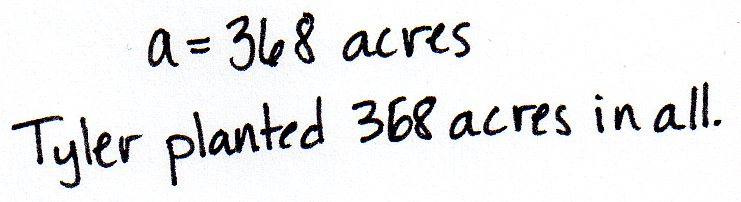 a = 368 acres
Tyler planted 368 acres in all.